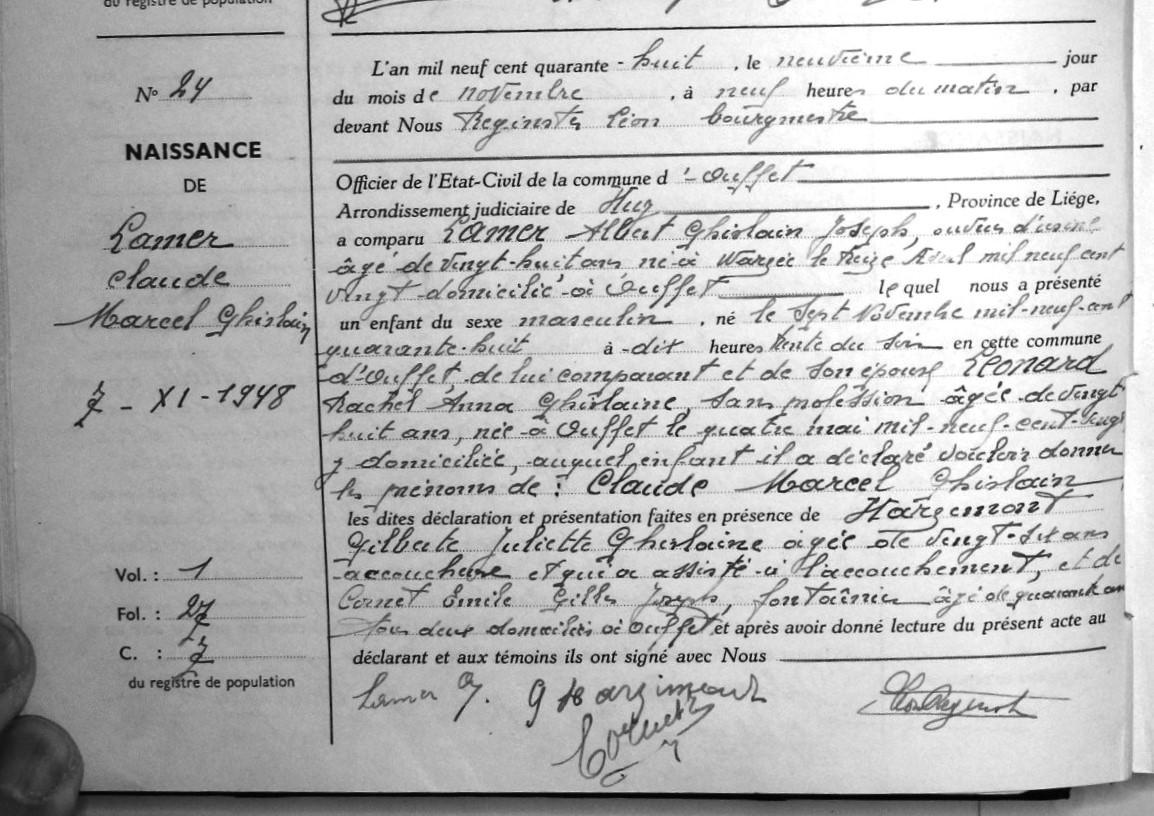 du registre de population
N° 24
NAISSANCE
DE
Lamer
Claude
Marcel Ghislain
7 - XI - 1948
Vol. : 1
Fol. : 27
C. : 7
du registre de population
L'an mil neuf cent quarante - huit , le neuvième jour
du mois de novembre , à neuf heures du matin , par
devant Nous Reginster Léon bourgmestre
Officier de l'Etat-Civil de la commune d'Ouffet
Arrondissement judiciaire de Huy , Province de Liége,
a comparu Lamer Albert Ghislain Joseph, ouvrier d'usine
âgé de vingt-huit ans né à Warzée le treize Avril mil neuf cent
vingt domicilié à Ouffet lequel nous a présenté
un enfant du sexe masculin , né le sept Novembre mil-neuf-cent
quarante-huit à dix heures trente du soir en cette commune
d'Ouffet de lui comparant et de son épouse Léonard
Rachel Anna Ghislaine, sans profession âgée de vingt
huit ans, née à Ouffet le quatre mai mil-neuf-cent-vingt
y domiciliée, auquel enfant il a déclaré vouloir donner
les prénoms de : Claude Marcel Ghislain
les dites déclaration et présentation faites en présence de Hargimont
Gilberte Juliette Ghislaine âgée de vingt-six ans
accoucheuse et qui a assisté à l'accouchement, et de
Cornet Emile Gilles Joseph, fontainier âgé de quarante ans
tous deux domiciliés à Ouffet et après avoir donné lecture du présent acte au
déclarant et aux témoins ils ont signé avec Nous
Lamer A. G Hargimont
Cornet